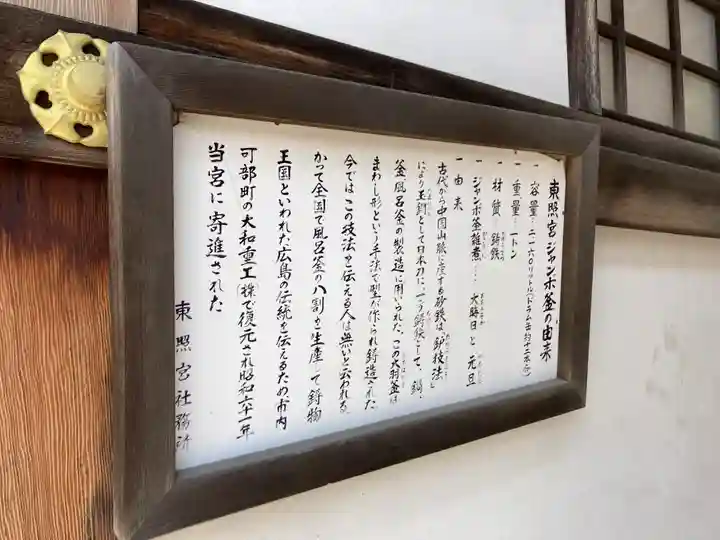 東照宮ジャンボ釜の由来
一 容量 二一六〇リットル(ドラム缶約十二本分)
一 重量 一トン
一 材質 鋳鉄
一 ジャンボ釜雑煮 大晦日と元旦
一 由来
古代から中国山脈に産する砂鉄は、鈩技法に
により玉鋼として日本刀に、一方鋳鉄として、鍋、
釜風呂釜の製造に用いられた。この大羽釜は
まわし形という手法で型が作られ鋳造された
今ではこの技法を伝える人は無いと云われる
かつて全国で風呂釜の八割を生産して鋳物
王国といわれた広島の伝統を伝えるため、市内
可部町の大和重工(株)で復元され昭和六十一年
当宮に寄進された
東照宮社務所